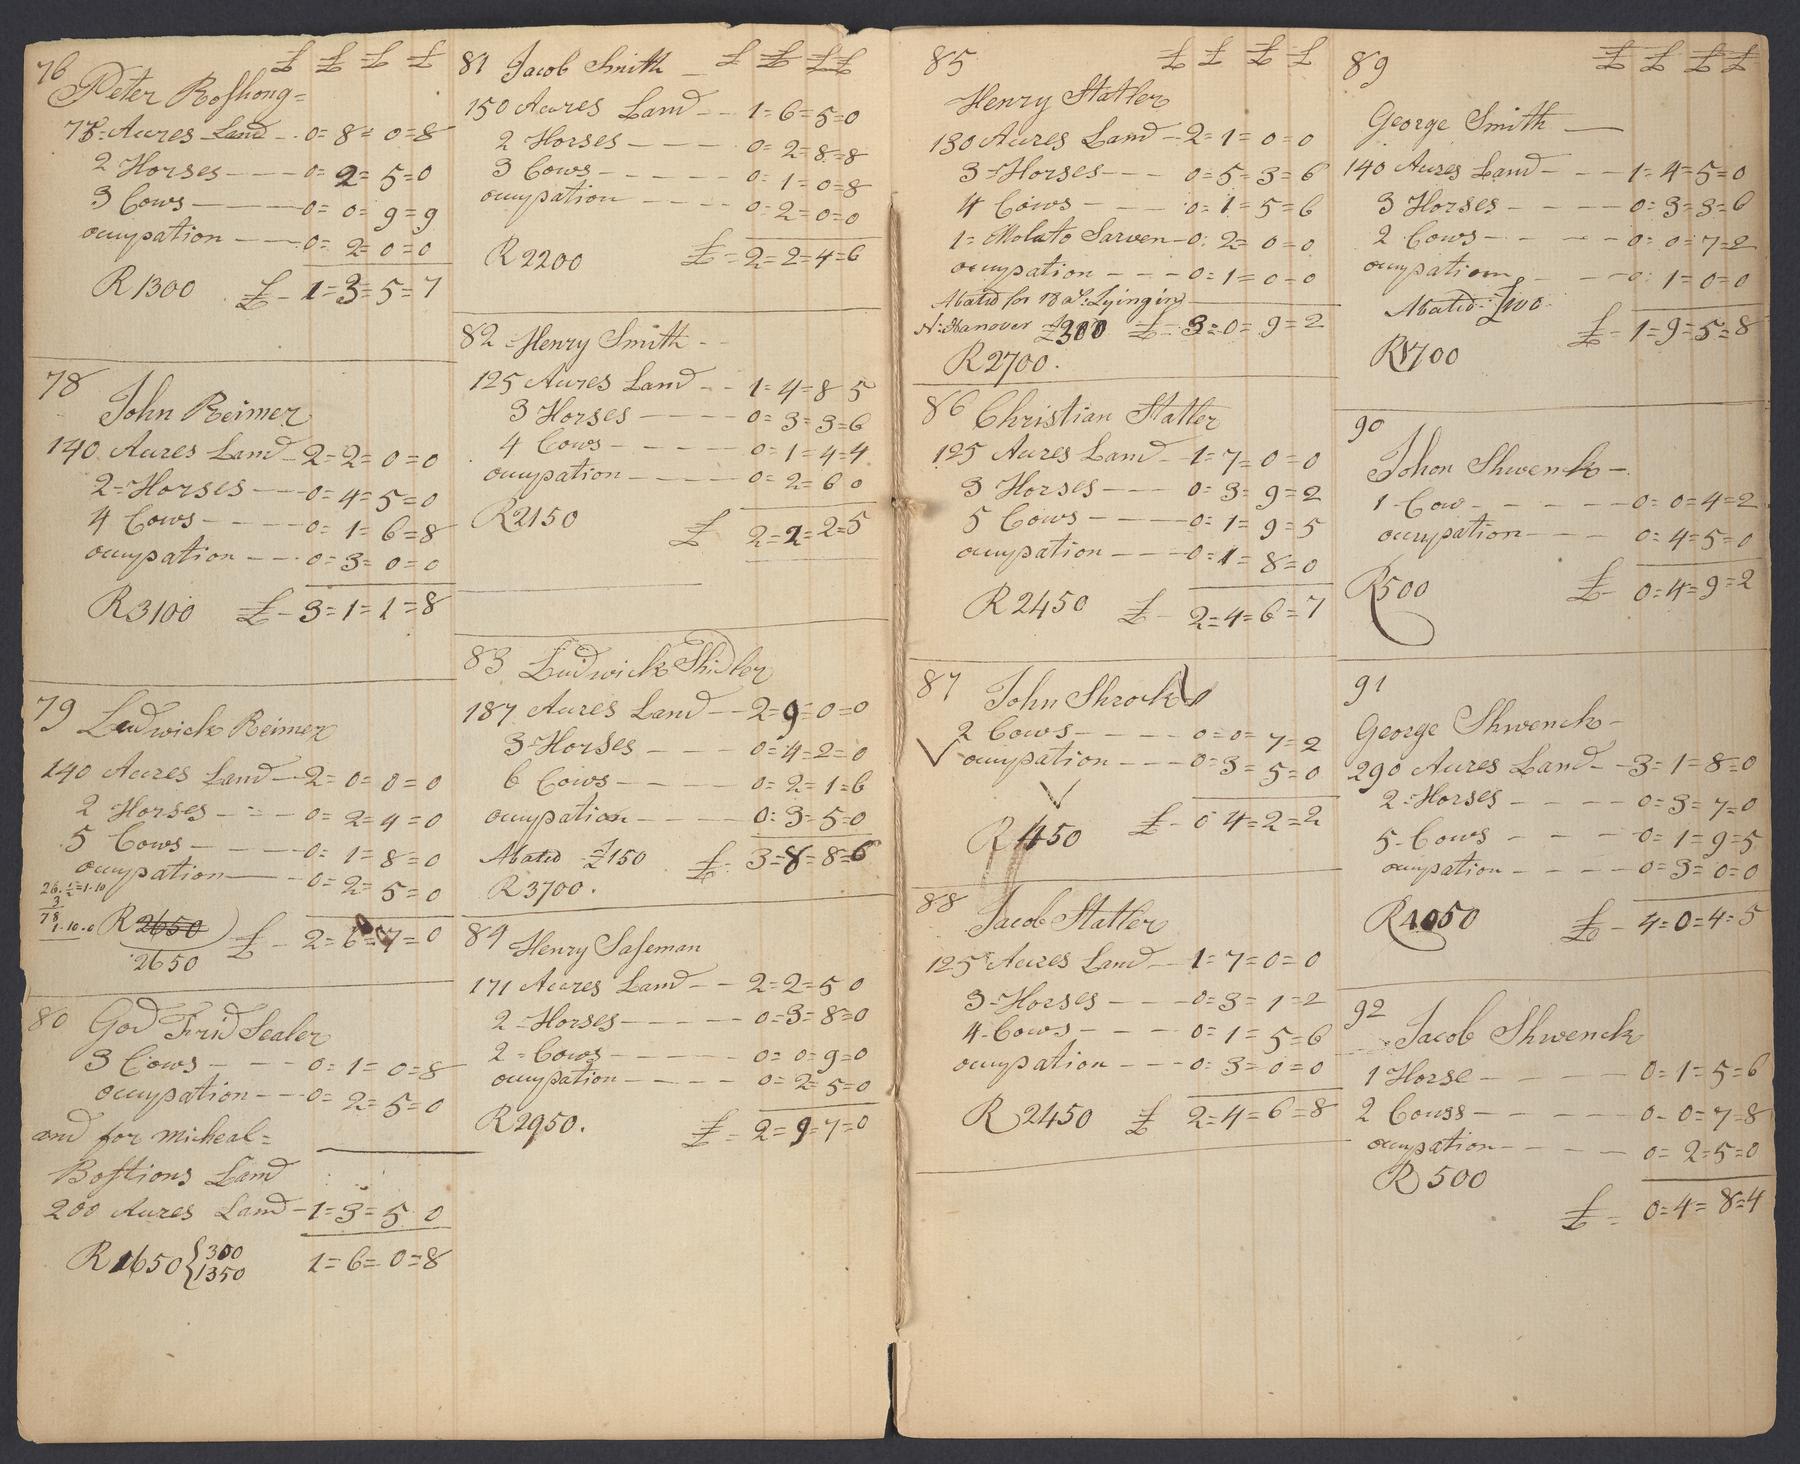 76 £ £ £ £
Peter Roshong=
77= Acres Land - - 0= 8= 0=8
2 Horses - - - 0= 2= 5=0
3 Cows - - - 0= 0= 9=9
ocuypation - - - 0= 2= 0=0
R1300 £ - 1=3=5=7
78
John Reimer
140 Acres Land - 2=2= 0=0
2=Horses - - - 0= 4= 5=0
4 Cows - - - - 0= 1= 6=8
ocuypation - - - 0= 3= 0= 0
R3100 £ - 3=1=1=8
79
Ludwick Reimer
140 Acres Land - 2= 0= 0= 0
2 Horses - - - 0= 2=4=0
5 Cows - - - - 0= 1= 8=0
ocuypation - - 0= 2= 5=0
26. ½=1.10
3
78
1.10.0 R 2650 £ - 2=6=7=0
2650
80 God Frid Sealer
3 Cows - - - 0= 1= 0=8
ocuypation - - - 0= 2= 5=0
and for Micheal=
Bostions Land
200 Acres Land - 1=3=5 0
R1650 { 300
1350 1=6= 0=8
81 Jacob Smith - £ £ £ £
150 Acres Land - - 1=6=5=0
2 Horses - - - - 0= 2=8=8
3 Cows - - - - - 0= 1=0=8
ocuypation - - - - 0=2=0=0
R2200 £=2=2=4=6
82 Henry Smith - -
125 Acres Land - - 1=4=8 5
3 Horses - - - - 0= 3=3=6
4 Cows - - - - - 0=1=4=4
ocuypation - - - - 0=2=6 0
R2150 £ 2=2=2=5
83 Ludwick Shidler
187 Acres Land - - 2=9=0=0
3=Horses - - - 0=4=2=0
6 Cows - - - - 0= 2=1=6
ocuypation - - - - 0:3=5=0
Abated - £150 £ - 3=8=8=6
R3700.
84 Henry Saseman
171 Acres Land - - 2=2=5 0
2=Horses - - - - 0=3=8=0
2=Cows - - - - - 0= 0=9=0
ocuypation - - - - 0= 2= 5=0
R2950. £= 2=9=7=0
85 £ £ £ £
Henry Statler
130 Acres Land - 2=1= 0=0
3=Horses - - - 0=5=3=6
4 Cows - - - - 0= 1=5=6
1= Molato Sarven - 0: 2= 0=0
ocuypation - - - 0=1=0=0
Abated for 78 aˢ: Lying in
N: Hanover £300 £ - 3=0=9=2
R2700.
86 Christian Statler
125 Acres Land - 1=7=0=0
3 Horses - - - 0= 3= 9=2
5 Cows - - - - 0= 1= 9=5
ocuypation - - - 0=1= 8=0
R2450 £ - 2=4=6=7
87 John Shrock
2 Cows - - - - 0=0= 7=2
ocuypation - - - 0=3= 5=0
R450 £ - 0 4=2=2
88
Jacob Statler
125 Acres Land - 1=7=0=0
3=Horses - - - 0=3= 1=2
4-Cows - - - - 0= 1= 5=6
ocuypation - - - 0= 3= 0=0
R2450 £ 2=4=6=8
89 £ £ £ £
George Smith -
140 Acres Land - - - 1=4=5=0
3 Horses - - - - 0=3=3=6
2 Cows - - - - 0= 0=7=2
ocuypation - - - - 0: 1=0=0
Abated: £100
R1700 £ - 1=9=5=8
90
Johon Shwenk -
1-Cow - - - - - 0= 0=4=2
ocuypation - - - 0= 4=5=0
R500 £ - 0=4=9=2
91
George Shwenck -
290 Acres Land - - 3=1=8=0
2=Horses - - - - 0=3=7=0
5-Cows - - - - 0= 1=9=5
ocuypation - - - - 0=3= 0=0
R4050 £ - 4=0=4=5
92
Jacob Shwenck
1 Horse - - - - 0=1=5=6
2 Couss - - - - 0- 0=7=8
ocuypation - - - - 0= 2=5=0
R500
£ = 0=4=8=4